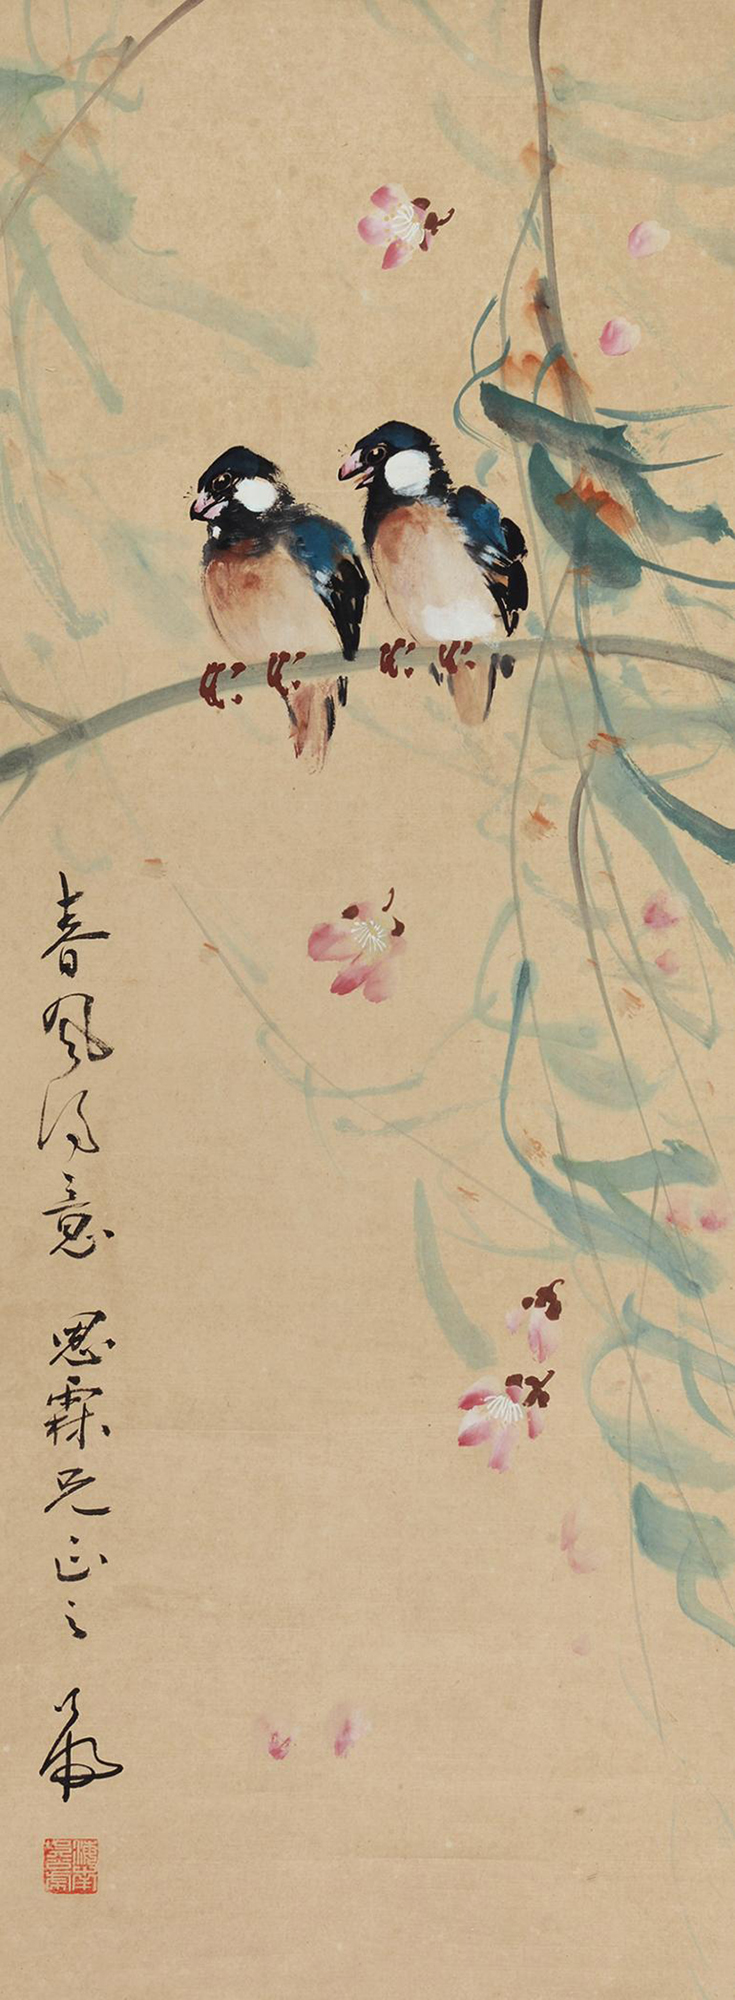 春風得意 思霖兄正之 公虎